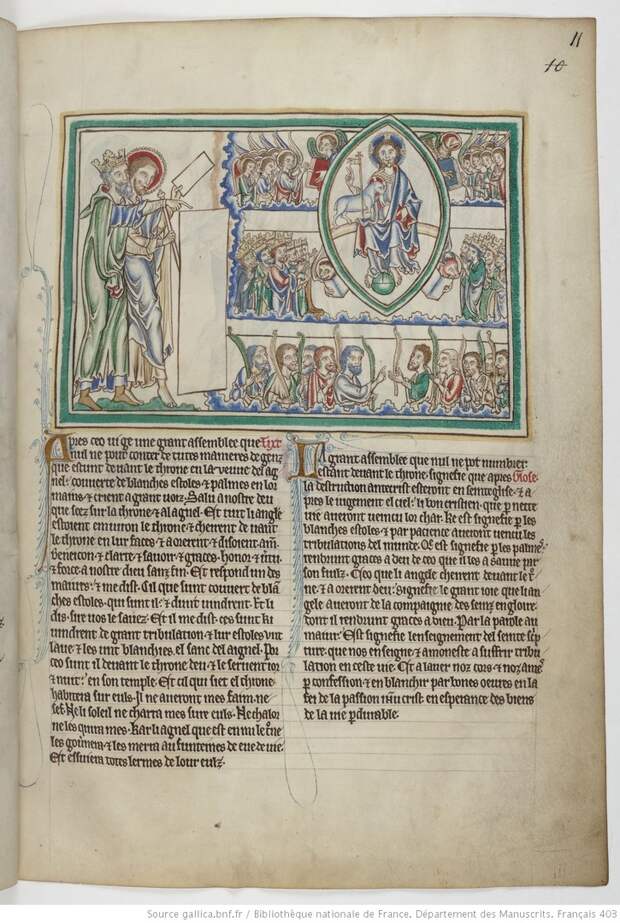 11
10
Apres ceo vi ge une grant assemblee que
Text
nul ne pout conter de tutes maneres de genz
que estunt devant le throne en la veuue del aig
nel: couverte de blanches estoles & palmes en lor
mains & crient a grant voiz. Salu a nostre deu
que seez sur la throne & al agnel. Et tuit li angle
estoient environ le throne & cheirent devant
le throne en lur faces & aorerent & disoient am
beneicon & clarte & savoir & graces. honor & vtu
& force a nostre dieu sanz fin. Et respond un des
maiurs: & me dist. Cil que sunt couvert de blan
ches estoles. qui sunt il: & dunt vindrent. Et li
dis. sir vos le savez. Et il me dist: ces sunt ki
vindrent de grant tribulation & lur estoles vnt
lave & les unt blanchies. el sanc del aignel. Por
ceo sunt il devant le throne deu & le servent ior
& nuit: en son temple. Et cil qui siet el throne
habitera sur euls. Il ne averont mes faim. ne
sef. Ne li soleil ne charra mes sure euls. Ne chalor
ne les quira mes. Kar li agnel que est en mi le trone
les governera & les merra au funtemes de eue de vie.
Et essuiera totes lermes de lour eulz.
La grant assemblee que nul ne pot numbrer
estant devant le throne. signefie que apres
Glose
la destruction antecrist esteront en seinte eglise & a
pres le iugement el ciel: li bon cristien. que par nette
vie averont veincu lor char. Ke est signefie par les
blanches estoles & par pacience averont vencu les
tribulations del munde. Qe est signefie par les palmes:
rendrunt graces a deu de ceo que il les a sauue par
son fiulz. E ceo que li angele cheirent devant le tro
ne & a orerent deu: signefie le grant ioie que li an
gele averont de la compaignie des seinz en gloire
dont il rendrunt graces a dieu. Par la parole au
maiur. Est signefie lenseignement del seinte scrip
ture. que nos enseigne & amoneste a suffrir tribu
lation en ceste vie. Et a laver noz cors & noz ames
par confession. & en blanchir par bones oevres en la
fei de la passion ihesu crist. en esperance des biens
de la vie pardurable.
Source gallica.bnf.fr / Bibliothèque nationale de France. Département des Manuscrits. Français 403